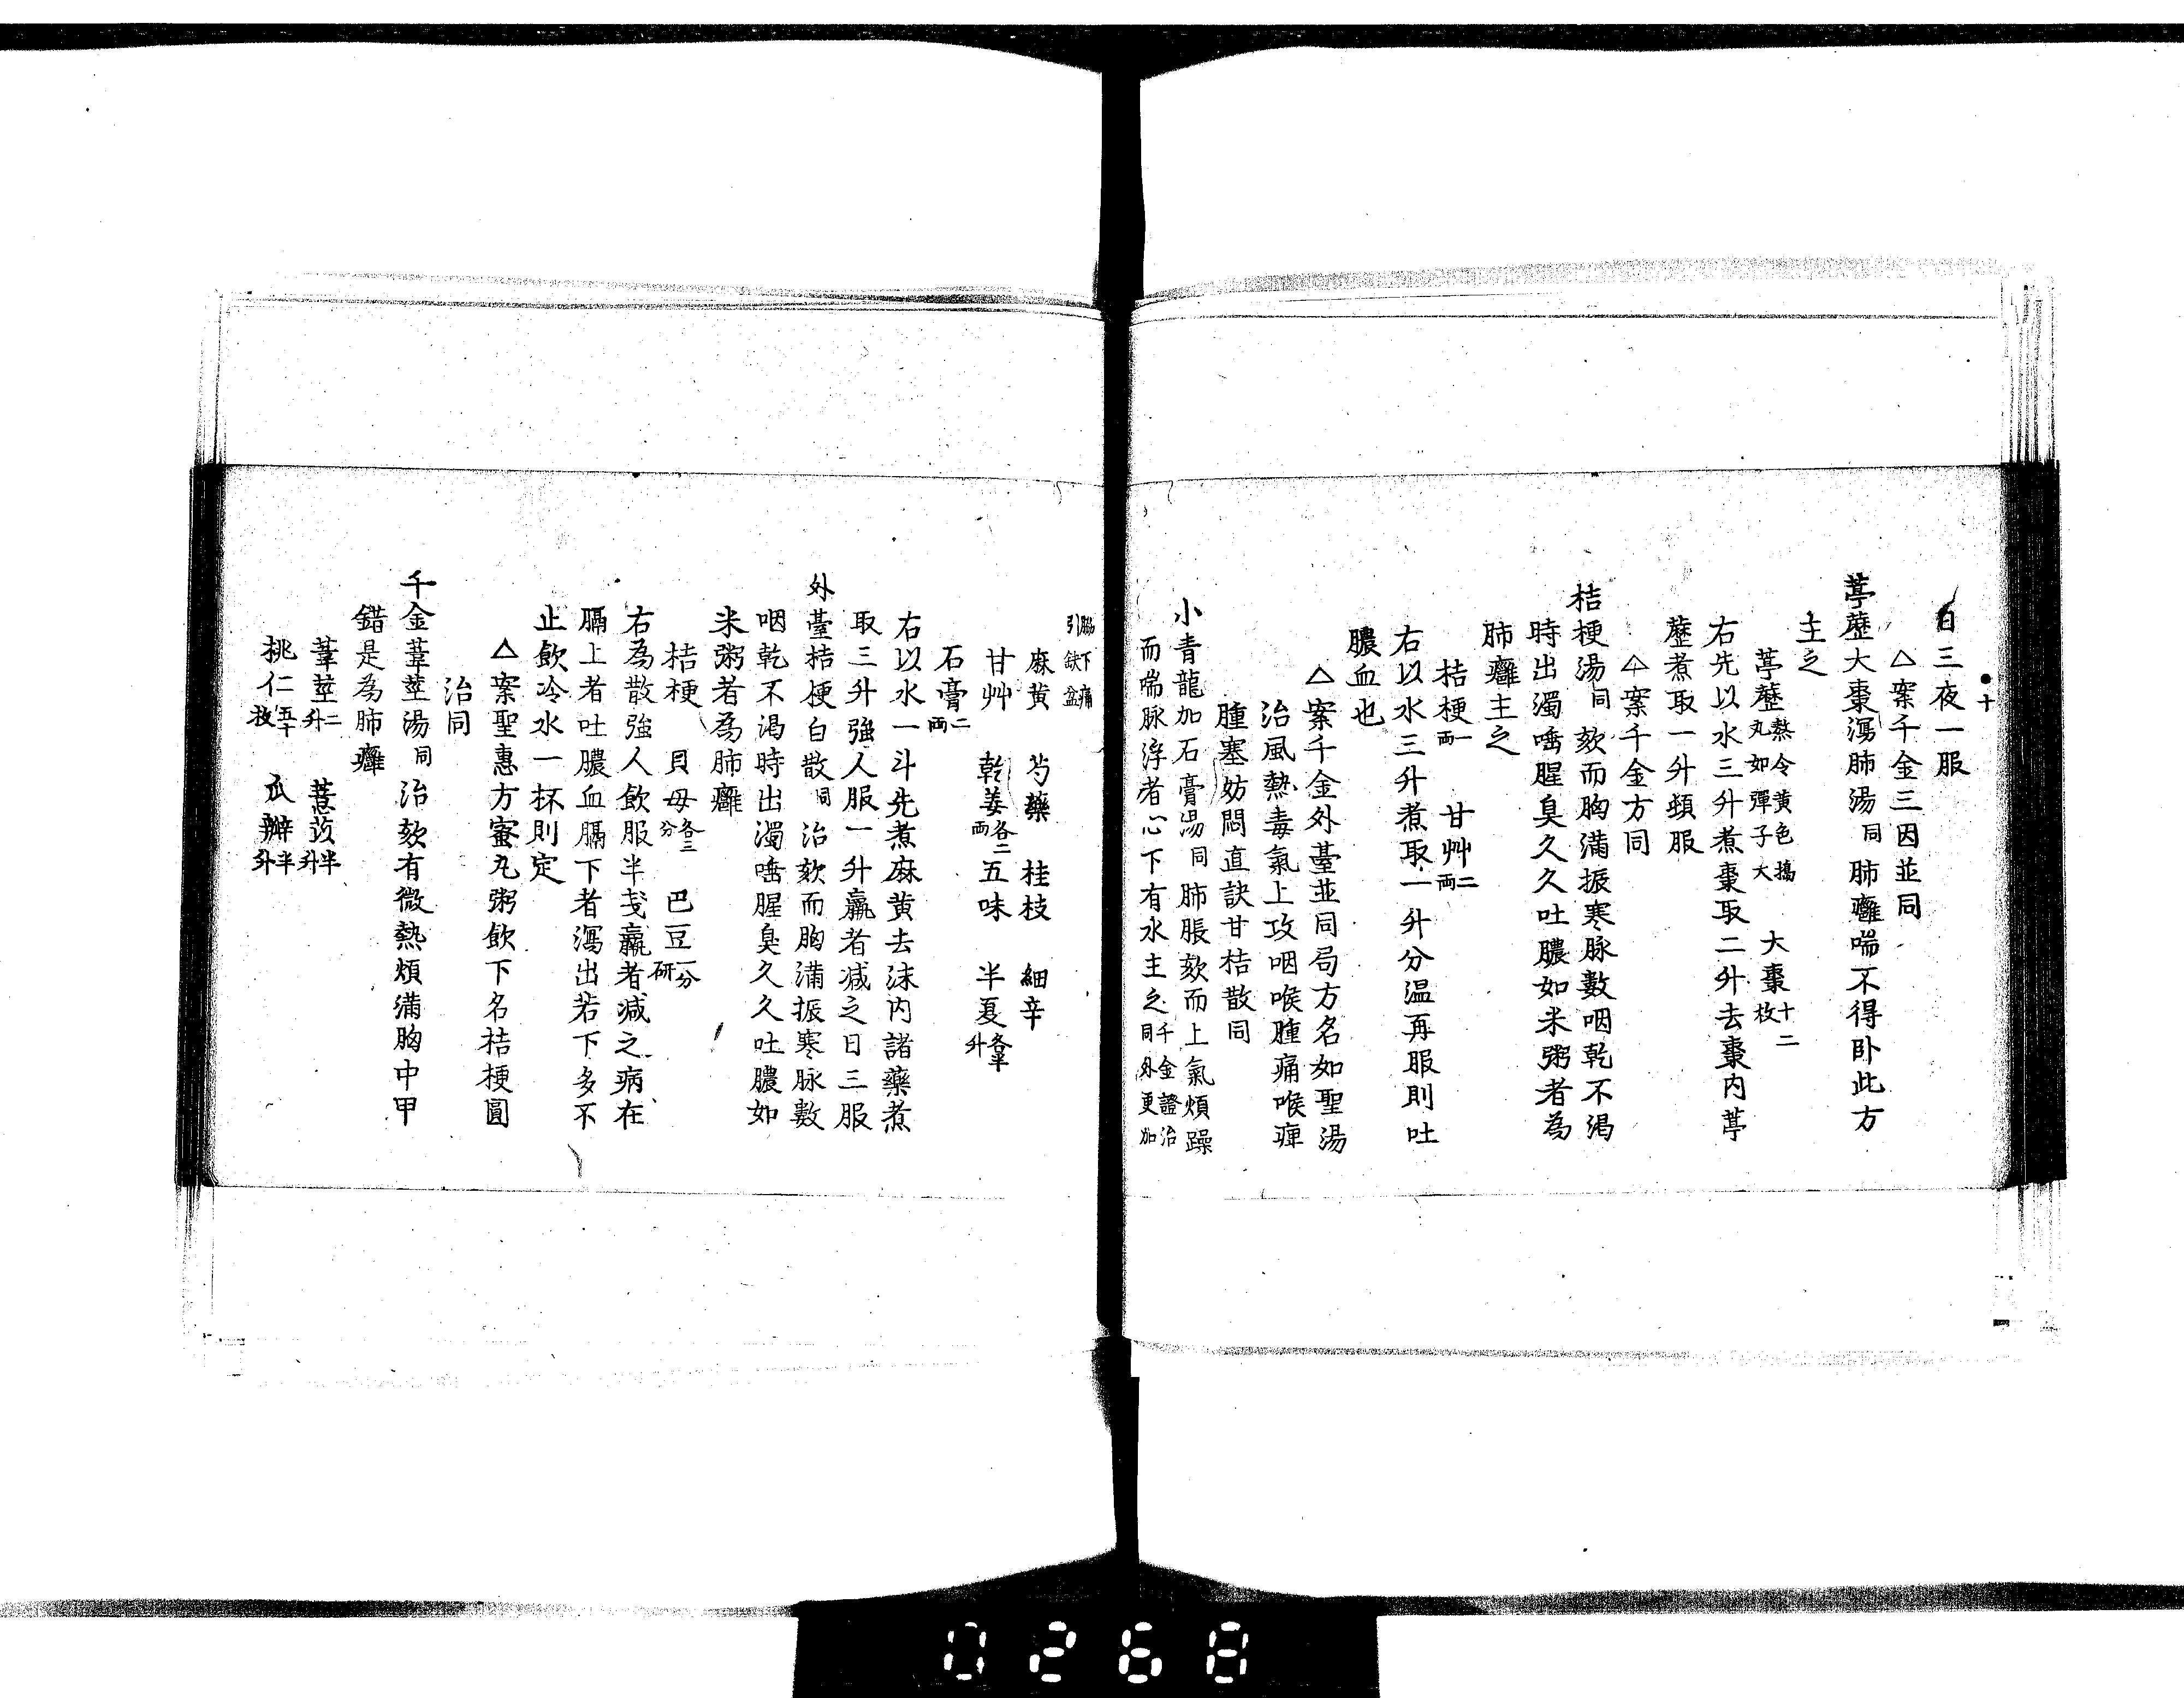 十
日三夜一服
△案千金三因並同
葶藶大棗瀉肺湯同 肺癰喘不得卧此方
主之
葶藶熬令黄色搗丸如彈子大 大棗十二枚
右先以水三升煮棗取二升去棗内葶
藶煮取一升頓服
△案千金方同
桔梗湯同 欬而胸満振寒脉數咽乾不渇
時出濁唾腥臭久久吐膿如米粥者為
肺癰主之
桔梗一両 甘艸二両
右以水三升煮取一升分温再服則吐
膿血也
△案千金外臺並同局方名如聖湯
治風熱毒氣上攻咽喉腫痛喉痺
腫塞妨悶直訣甘桔散同
小青龍加石膏湯同 肺脹欬而上氣煩躁
而喘脉浮者心下有水主之千金證治同外更加
脇下痛引缺盆
麻黄 芍藥 桂枝 細辛
甘艸 乾姜各二両 五味 半夏各半升
石膏二両
右以水一斗先煮麻黄去沫内諸藥煮
取三升強人服一升羸者减之日三服
外臺桔梗白散同 治欬而胸満振寒脉數
咽乾不渇時出濁唾腥臭久久吐膿如
米粥者為肺癰
桔梗 貝母各三分 巴豆一分研
右為散強人飲服半戔羸者减之病在
膈上者吐膿血膈下者瀉出若下多不
止飲冷水一杯則定
△案聖惠方蜜丸粥飲下名桔梗圓
治同
千金葦莖湯同 治欬有微熱煩満胸中甲
錯是為肺癰
葦莖二升 薏苡半升
桃仁五十枚 瓜瓣半升
0268